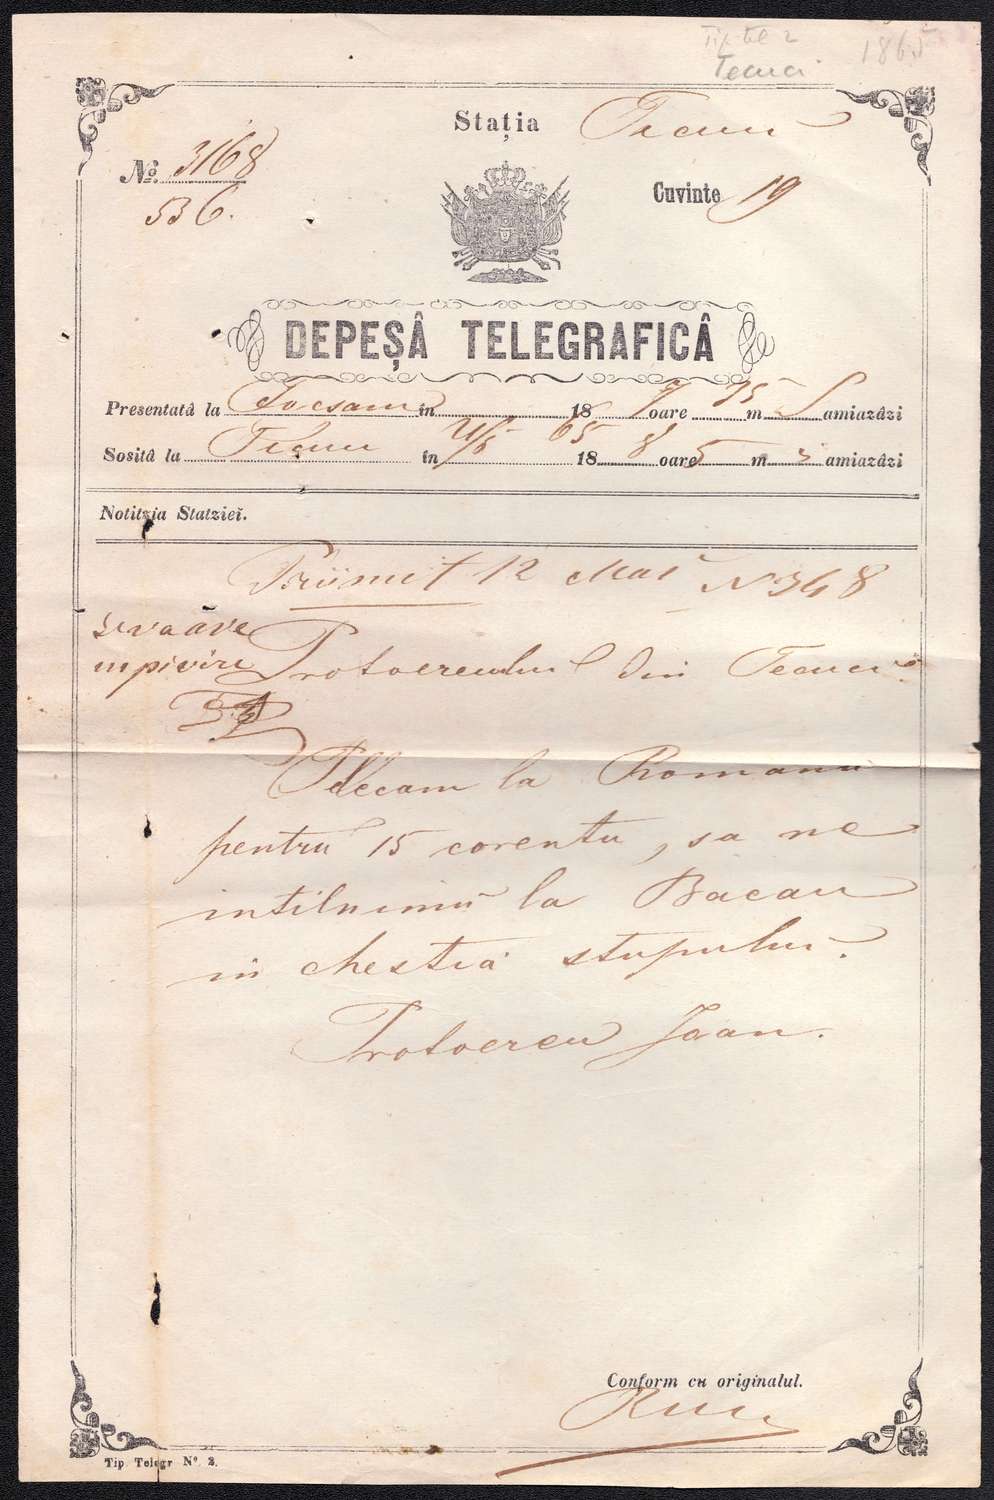 Tip tel 2
Tecuci
1865
Stația Tecuci
No. 3168
536.
Cuvinte 19
DEPEȘÂ TELEGRAFICÂ
Presentatâ la Focsani în 18 7 oare 35 m S amiazâzi
Sositâ la Tecuci în 11/5 1865 8 oare 5 m s amiazâzi
Notitzia Statziei.
Priimit 12 Mai N 348
se va ave
in privire
Protoereului din Tecuci
Plecam la Romanu
pentru 15 corentu, sa ne
intilnimu la Bacau
in chestia stupului.
Protoereu Joan.
Conform cu originalul.
Tip Telegr No. 2.